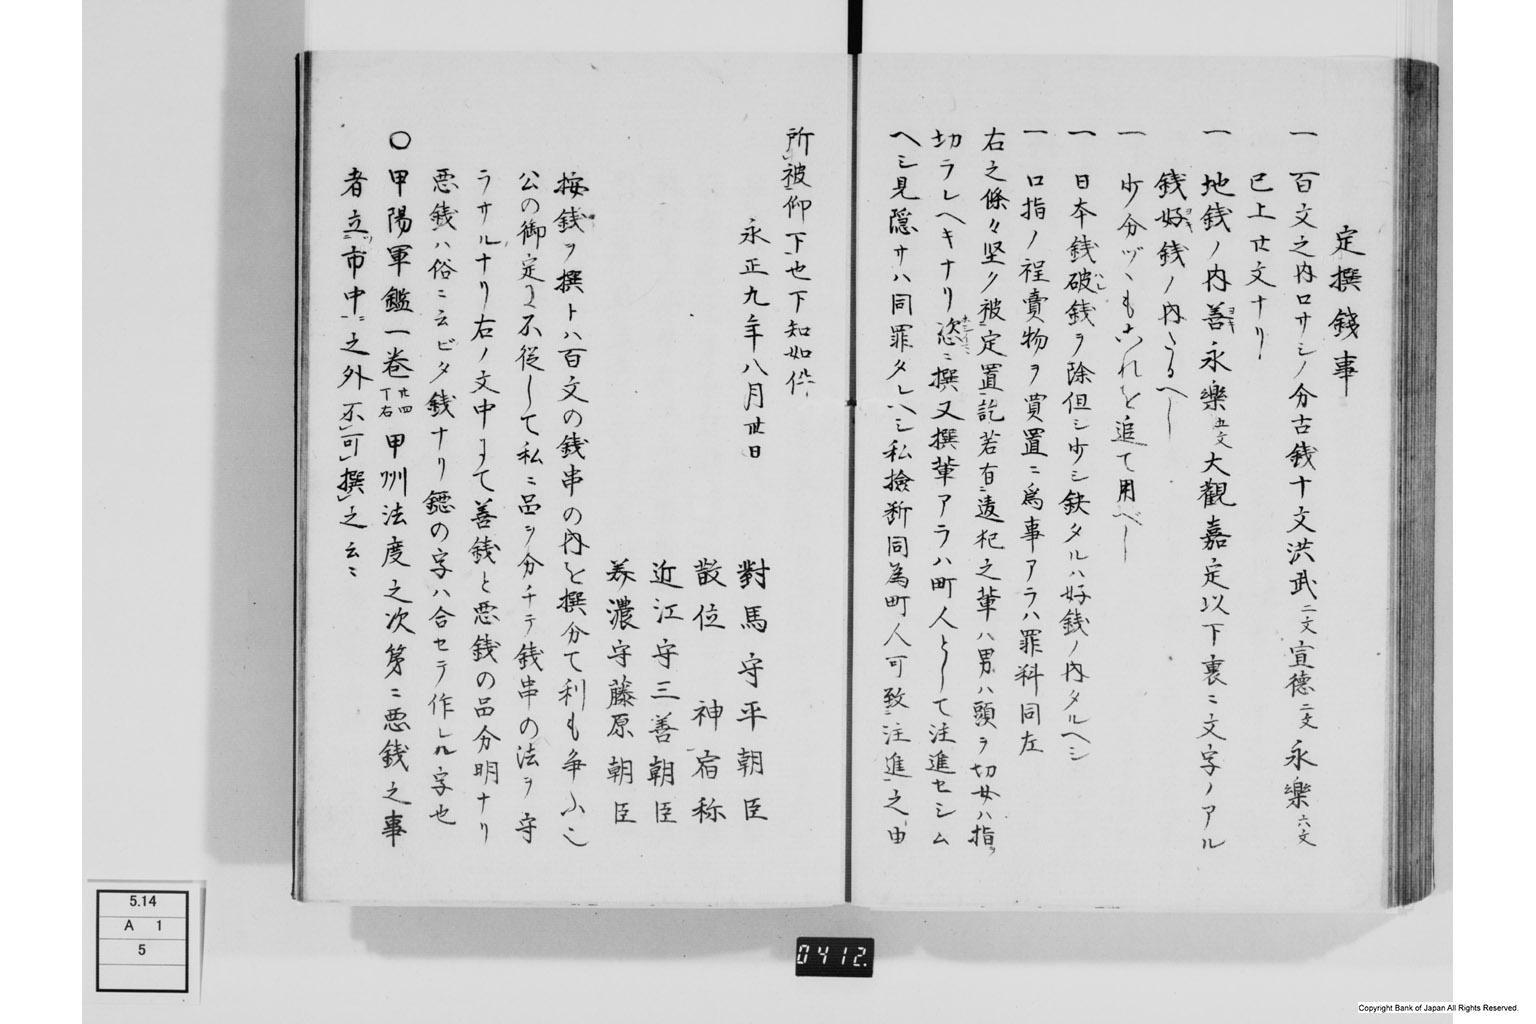 定撰錢事
一 百文之内ロサシノ分古銭十文洪武二文宣德二文永樂六文
已上廿文ナリ
一 地銭ノ内善ヨキ永樂五文大觀嘉定以下裏ニ文字ノアル
銭好ヨキ銭ノ内たるへし
一 少分ヅヽもこれを追て用べし
一 日本銭破銭ヲ除但シ少シ欠タルハ好銭ノ内タルヘシ
一 口指ノ程賣物ヲ買置ニ為事アラハ罪科同左
右之條々堅ク被定置訖若有違犯之輩ハ男ハ頭ヲ切女ハ指ヲ
切ラレヘキナリ恣ニ撰又撰輩アラハ町人として注進セシム
ヘシ見隠サハ同罪タレヘシ私撿断同為町人可致注進之由
所被仰下也下知如件
永正九年八月卅日
對馬守平朝臣
散位 神宿祢
近江守三善朝臣
美濃守藤原朝臣
按銭ヲ撰トハ百文の銭串の内を撰分て利も争ふ也
公の御定に不従して私ニ品ヲ分チテ銭串の法ヲ守
ラサルナリ右ノ文中にて善銭と悪銭の品分明ナリ
悪銭ハ俗ニ云ビタ銭ナリ鐚の字ハ合セテ作レル字也
〇 甲陽軍鑑一巻廿四丁右甲州法度之次第ニ悪銭之事
者立市中ニ之外不可撰之云々
5.14
A 1
5
0412.
Copyright Bank of Japan All Rights Reserved.